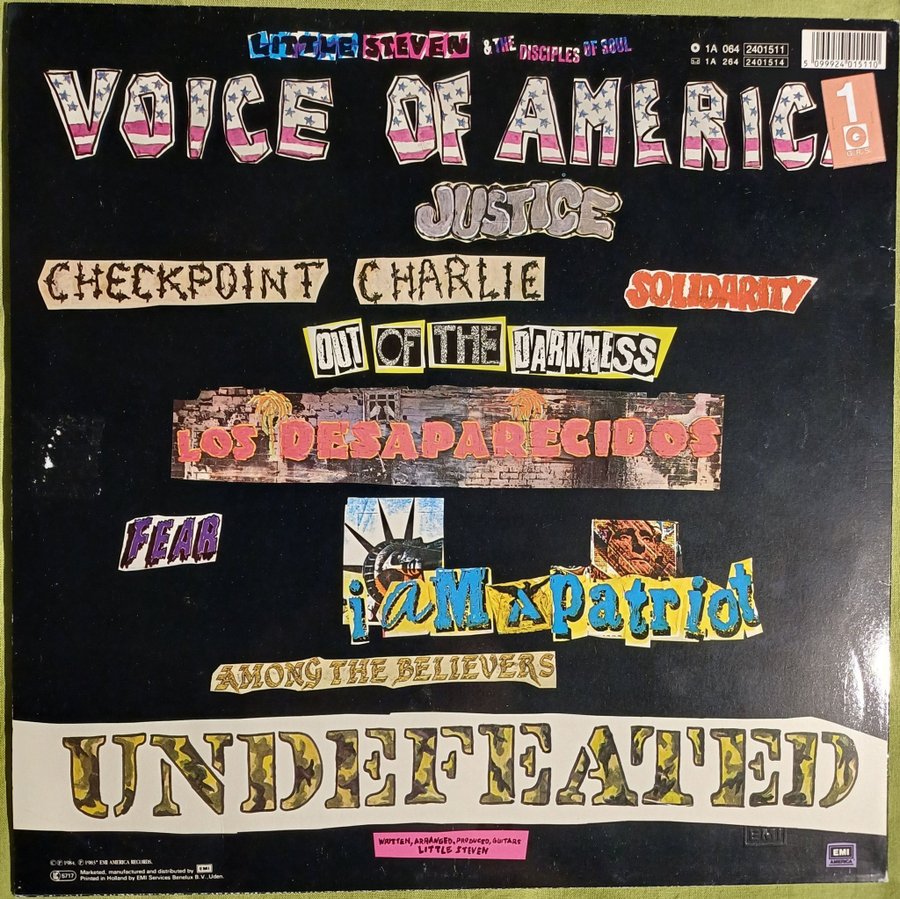 LITTLE STEVEN & THE DISCIPLES OF SOUL
1A 064 2401511
1A 264 2401514
5 099924 015110
VOICE OF AMERIC
1
G.R.S.
JUSTICE
CHECKPOINT CHARLIE
SOLIDARITY
OUT OF THE DARKNESS
LOS DESAPARECIDOS
FEAR
i aM A Patriot
AMONG THE BELIEVERS
UNDEFEATED
WRITTEN, ARRANGED, PRODUCED, GUITARS
LITTLE STEVEN
EMI
© ℗ 1984, ℗ 1983* EMI AMERICA RECORDS.
5717 Marketed, manufactured and distributed by EMI
Printed in Holland by EMI Services Benelux B.V., Uden.
EMI
AMERICA